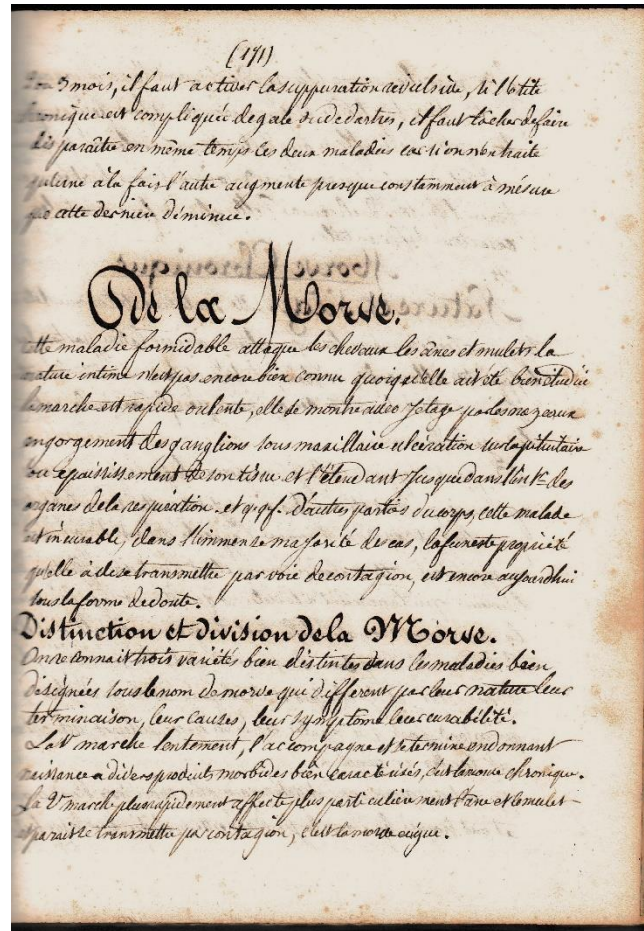 (171)
3 mois, il faut activer la suppuration révulsive, si l'otite
chronique est compliquée de gale ou de dartres, il faut tâcher de faire
disparaître en même temps les deux maladies car si on n'en traite
qu'une à la fois l'autre augmente presque constamment à mésure
que cette dernière diminue.
De la Morve.
Cette maladie formidable attaque les chevaux les ânes et mulets la
nature intime n'est pas encore bien connu quoiqu'elle ait été bien étudiée
la marche est rapide ou lente, elle se montre avec jetage par les nazeaux
engorgement des ganglions sous maxillaire ulcération sur la pituitaire
ou epaississement de son tissu et s'étendant jusque dans l'int.r des
organes de la respiration. et q.q.f. d'autres parties du corps, cette malade
est incurable, dans l'immense majorité de cas, la funeste propriété
qu'elle à de se transmettre par voie de contagion, est encore aujourdhui
sous la forme de doute.
Distinction et division de la Morve.
On reconnait trois variétés bien distintes dans les maladies bien
désignées sous le nom de morve qui different par leur nature leur
terminaison, leur causes, leur symptôme leur curabilité.
La 1.e marche lentement, s'accompagne et se termine en donnant
naissance a divers produits morbides bien caractérisés, c'est la morve chronique.
La 2.e marche plus rapidement affecte plus particulièrement l'ane et le mulet
et parait se transmettre par contagion, c'est la morve aigue.